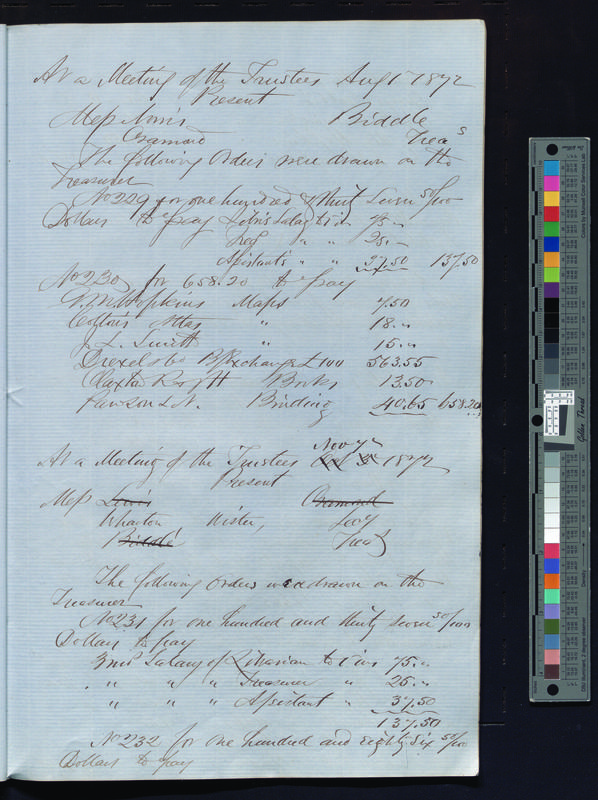 At a Meeting of the Trustees Aug 1st 1872
Present
Mess Norris Biddle
Cramond Treas
The following Orders were drawn on the
Treasurer
No 229 for one hundred & thirty Seven 50/100
Dollars to pay Libris Salary 75 "
Treas " " 25 "
Assistants " " 37.50 137.50
No 230 for 658.20 to pay
G. M. Hopkins Maps 7.50
Coltons Atlas " 18 "
J. L. Smith " 15 "
Drexel & Co B/Exchange £100 563.55
Claxton R & H Books 13.50
Pawson & N. Binding 40.65 658.20
Nov 7th
At a Meeting of the Trustees Oct 3 1872
Present
Mess Lewis Cramond
Wharton Wister, Levy
Biddle Treas
The following orders were drawn on the
Treasurer
No 231 for one hundred and thirty seven 50/100
Dollars to pay
3 mos Salary of Librarian to 75 "
" " " " Treasurer " 25 "
" " " " Assistant " 37.50
137.50
No 232 for one hundred and eighty six 50/100
Dollars to pay
Golden Thread